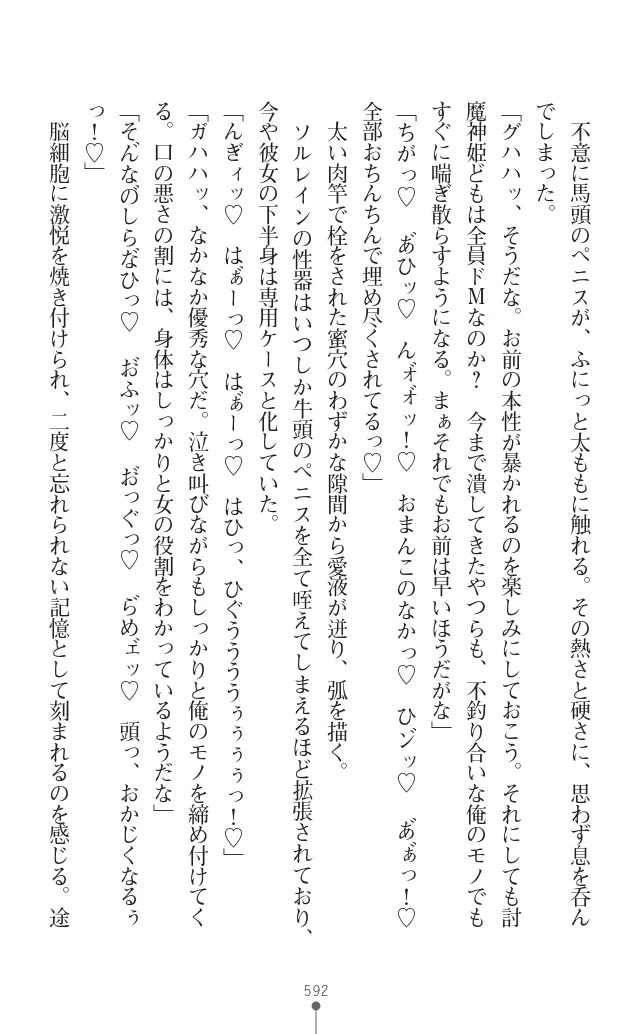 不意に馬頭のペニスが、ふにっと太ももに触れる。その熱さと硬さに、思わず息を呑ん
でしまった。
「グハハッ、そうだな。お前の本性が暴かれるのを楽しみにしておこう。それにしても討
魔神姫どもは全員ドMなのか?　今まで潰してきたやつらも、不釣り合いな俺のモノでも
すぐに喘ぎ散らすようになる。まぁそれでもお前は早いほうだがな」
「ちがっ♡　あ゛ひッ♡　んォ゛ォ゛ッ!♡　おまんこのなかっ♡　ひゾッ♡　あ゛ぁ゛っ!♡
全部おちんちんで埋め尽くされてるっ♡」
太い肉竿で栓をされた蜜穴のわずかな隙間から愛液が迸り、弧を描く。
ソルレインの性器はいつしか牛頭のペニスを全て咥えてしまえるほど拡張されており、
今や彼女の下半身は専用ケースと化していた。
「んぎィッ♡　はぁ゛ーっ♡　はぁ゛ーっ♡　はひっ、ひぐううううぅぅぅぅっ!♡」
「ガハハッ、なかなか優秀な穴だ。泣き叫びながらもしっかりと俺のモノを締め付けてく
る。口の悪さの割には、身体はしっかりと女の役割をわかっているようだな」
「そんなのしらな゛ひっ♡　お゛ふッ♡　お゛っぐっ♡　ら゛めェ゛ッ♡　頭っ、おかじくなるぅ
っ!♡」
脳細胞に激悦を焼き付けられ、二度と忘れられない記憶として刻まれるのを感じる。途
592